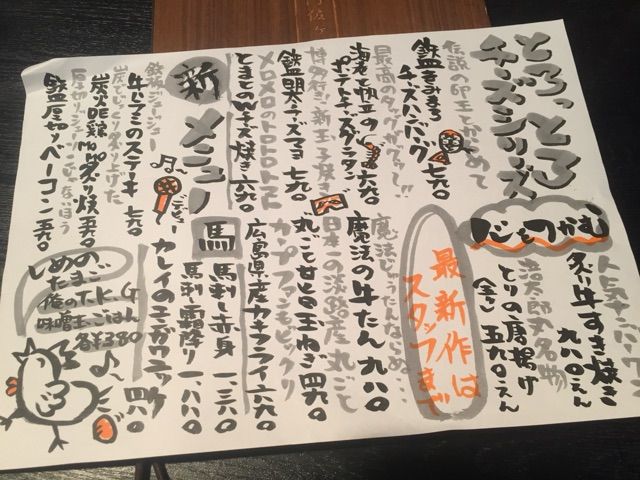 とろっとろ
チーズシリーズ
伝説の卵王とからめて
鉄皿きみまろ
チーズハンバーグ 七九〇
最高のタッグがここに!!
海老と帆立の
ポテトチーズグラタン 六九〇
鉄皿明太チーズマヨ 七九〇
メロメロのトロトロトマト
とまとWチーズ焼き 六九〇
新メニュー
鉄板ジュージュー
牛ハラミのステーキ 七九〇
炭でじっくり炙り上げた
炭火地鶏ももの炙り焼き
鉄皿厚切りベーコン 五九〇
心をつかむ
人気ナンバーワン
炙り牛すき焼き
九八〇えん
浩太郎の名物
とりの唐揚げ
五九〇えん
最新作は
スタッフまで
魔法の牛たん 九八〇
日本一の淡路産 丸ごと
丸ごと甘旨玉ねぎ 四九〇
カープファンもビックリ
広島県産カキフライ 六九〇
馬
馬刺し赤身 一、二六〇
馬刺し霜降り 一、八八〇
デビュー
カレイのエンガワユッケ 四八〇
〆のたまごめし
俺のT.K.G
味噌玉ごはん
各¥380